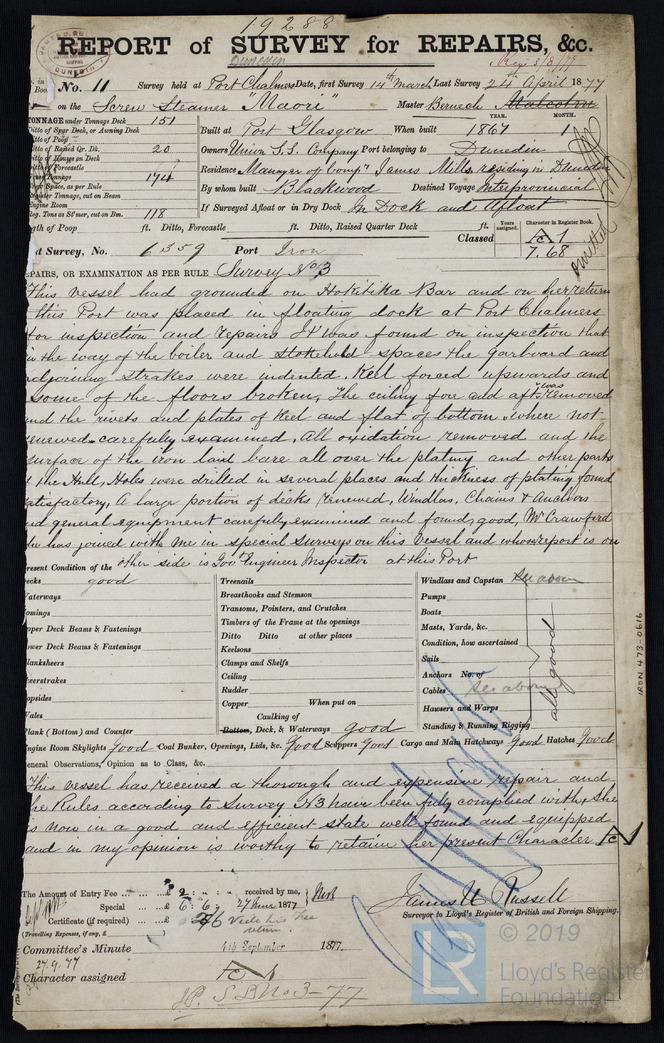 19288
REPORT of SURVEY for REPAIRS, &c.
Dunedin
No. 11 Survey held at Port Chalmers Date, first Survey 14th March Last Survey 24th April 1877
on the Screw Steamer "Maori" Master Bernech Malcolm
TONNAGE under Tonnage Deck 151
Ditto of Spar Deck, or Awning Deck
Ditto of Poop
Ditto of Raised Qr. Dk. 20
Ditto of Houses on Deck
Ditto of Forecastle
Gross Tonnage 174
Space, as per Rule
Register Tonnage, cut on Beam
Engine Room
Reg. Tons as St'mer, cut on Bm. 118
YEAR. MONTH.
Built at Port Glasgow When built 1867 1
Owners Union S.S. Company Port belonging to Dunedin
Residence Manager of Compy James Mills, residing in Dunedin
By whom built Blackwood Destined Voyage Interprovincial
If Surveyed Afloat or in Dry Dock In Dock and Afloat
omitted
gth of Poop ft. Ditto, Forecastle ft. Ditto, Raised Quarter Deck ft.
Years assigned. Character in Register Book.
Classed A 1
7.68
t Survey, No. 6359 Port Iron
PAIRS, OR EXAMINATION AS PER RULE Survey No 3
This vessel had grounded on Hokitika Bar and on her return
this Port was placed in floating dock at Port Chalmers
for inspection and repairs It was found on inspection that
in the way of the boiler and stokehold spaces the garboard and
adjoining strakes were indented. Keel forced upwards and
some of the floors broken, The ceiling fore and aft was removed
and the rivets and plates of keel and flat of bottom where not
renewed carefully examined, All oxidation removed and the
surface of the iron laid bare all over the plating and other parts
the Hull, Holes were drilled in several places and thickness of plating found
satisfactory, A large portion of decks renewed, Windlas, Chains & Anchors
and general equipment carefully examined and found good, Mr Crawford
who has joined with me in special surveys on this vessel and whose report is on
other side is Govt Engineer Inspector at this Port
resent Condition of the
ecks good
aterways
omings
pper Deck Beams & Fastenings
ower Deck Beams & Fastenings
lanksheers
heerstrakes
opsides
ales
lank (Bottom) and Counter
Treenails
Breasthooks and Stemson
Transoms, Pointers, and Crutches
Timbers of the Frame at the openings
Ditto Ditto at other places
Keelsons
Clamps and Shelfs
Ceiling
Rudder
Copper When put on
Caulking of
Bottom, Deck, & Waterways good
Windlass and Capstan See above
Pumps
Boats
Masts, Yards, &c.
Condition, how ascertained
Sails
Anchors No. of
Cables See above
Hawsers and Warps
Standing & Running Rigging
all good
ngine Room Skylights Good Coal Bunker, Openings, Lids, &c. Good Scuppers Good Cargo and Main Hatchways Good Hatches Good
eneral Observations, Opinion as to Class, &c.
This vessel has received a thorough and expensive repair and
he Rules according to Survey No 3 have been fully complied with, She
is now in a good and efficient state well found and equipped
and in my opinion is worthy to retain her present Character A 1
The Amount of Entry Fee £ 2: received by me,
Special £ 6: 6: 27 June 1877
Certificate (if required) £ 2/6 Vide his Fee return.
(Travelling Expenses, if any, £ )
James U Russell
Surveyor to Lloyd's Register of British and Foreign Shipping.
Committee's Minute 4th September 1877.
27.9.77
Character assigned A 1
S S No 3-77
IRON 473-0616
© 2019
LR
Lloyd's Register
Foundation